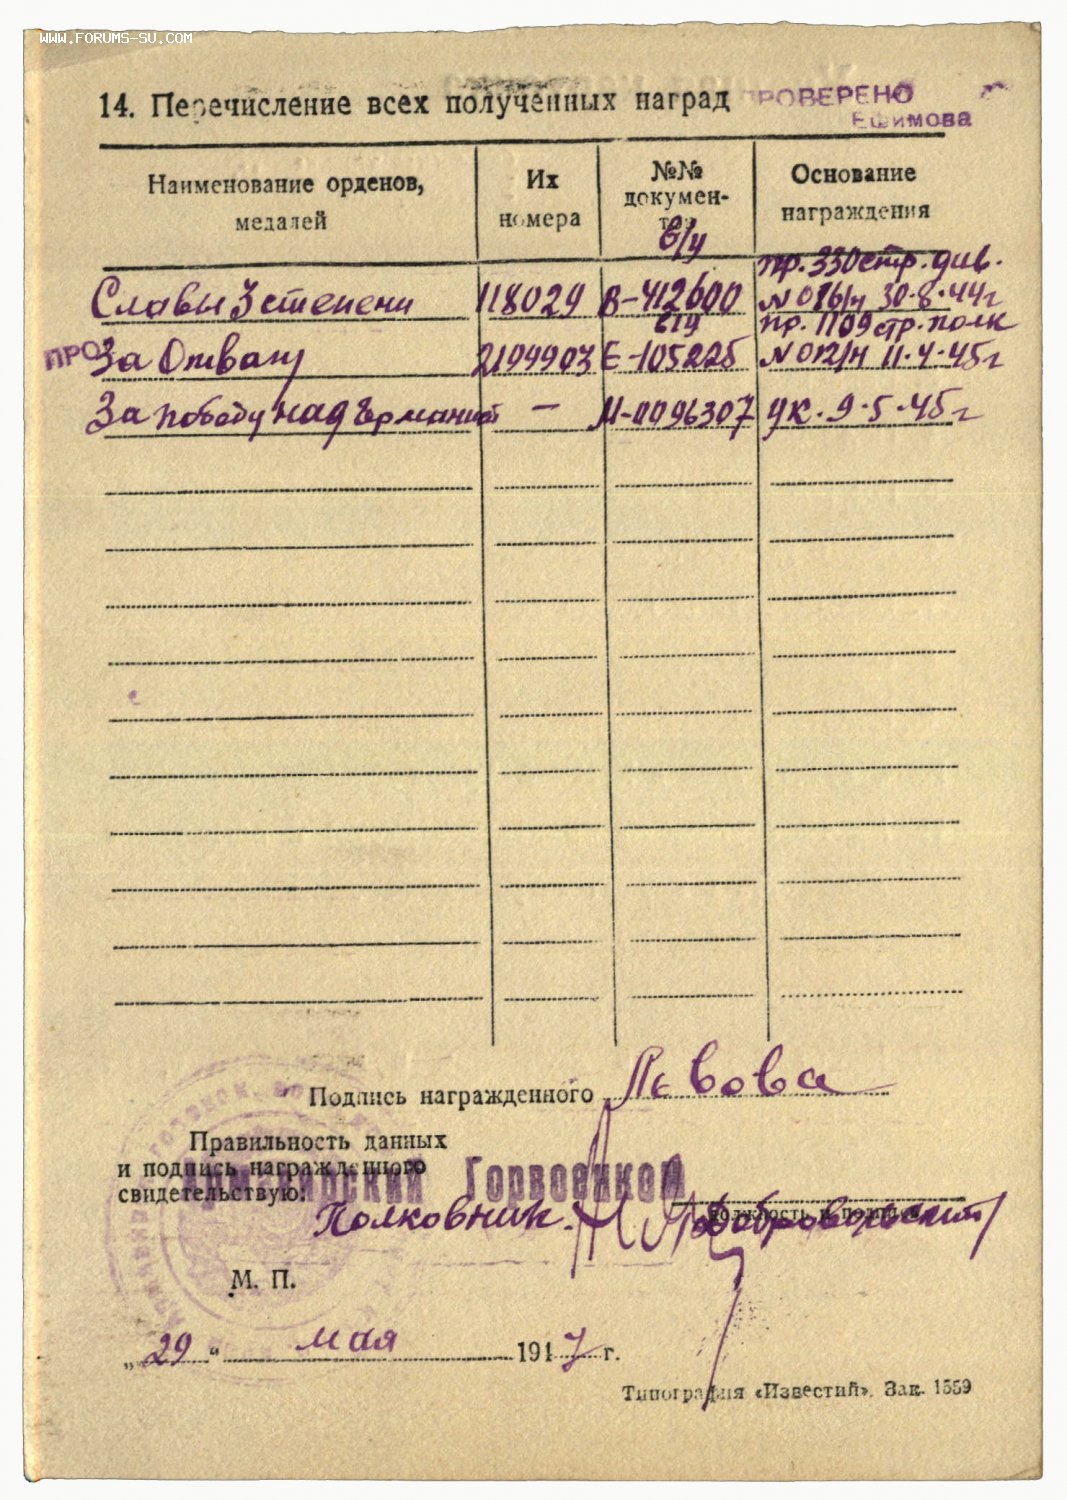 WWW.FORUMS-SU.COM
14. Перечисление всех полученных наград
ПРОВЕРЕНО
Ефимова
Наименование орденов, медалей
Их номера
№№ докумен-
Основание награждения
б/у
пр. 330 стр. див.
Славы 3 степени 118029 В-412600 N 016/н 30-8-44г
пр. 1109 стр. полк
ПРО
За Отвагу 2194903 Е-105225 N 012/н 11-4-45г
За победу над Германией — М-0096307 Ук. 9-5-45г
Подпись награжденного Львова
Правильность данных
и подпись награжденного
свидетельствую:
Армавирский Горвоенком
Полковник Добровольский
должность и подпись
М. П.
„29“ мая 1947 г.
Типография «Известий». Зак. 1559